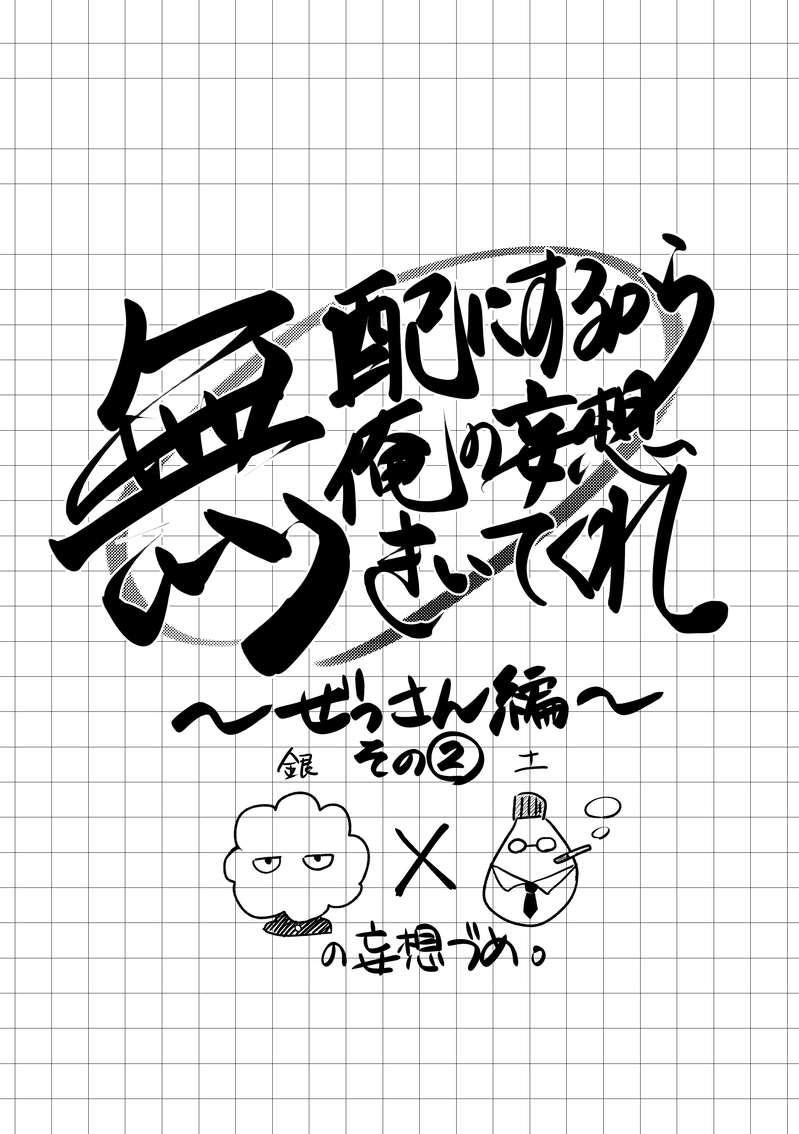 無配にするから
俺の妄想
きいてくれ
～ぜっさん編～
その②
銀 土
×
の妄想づめ。